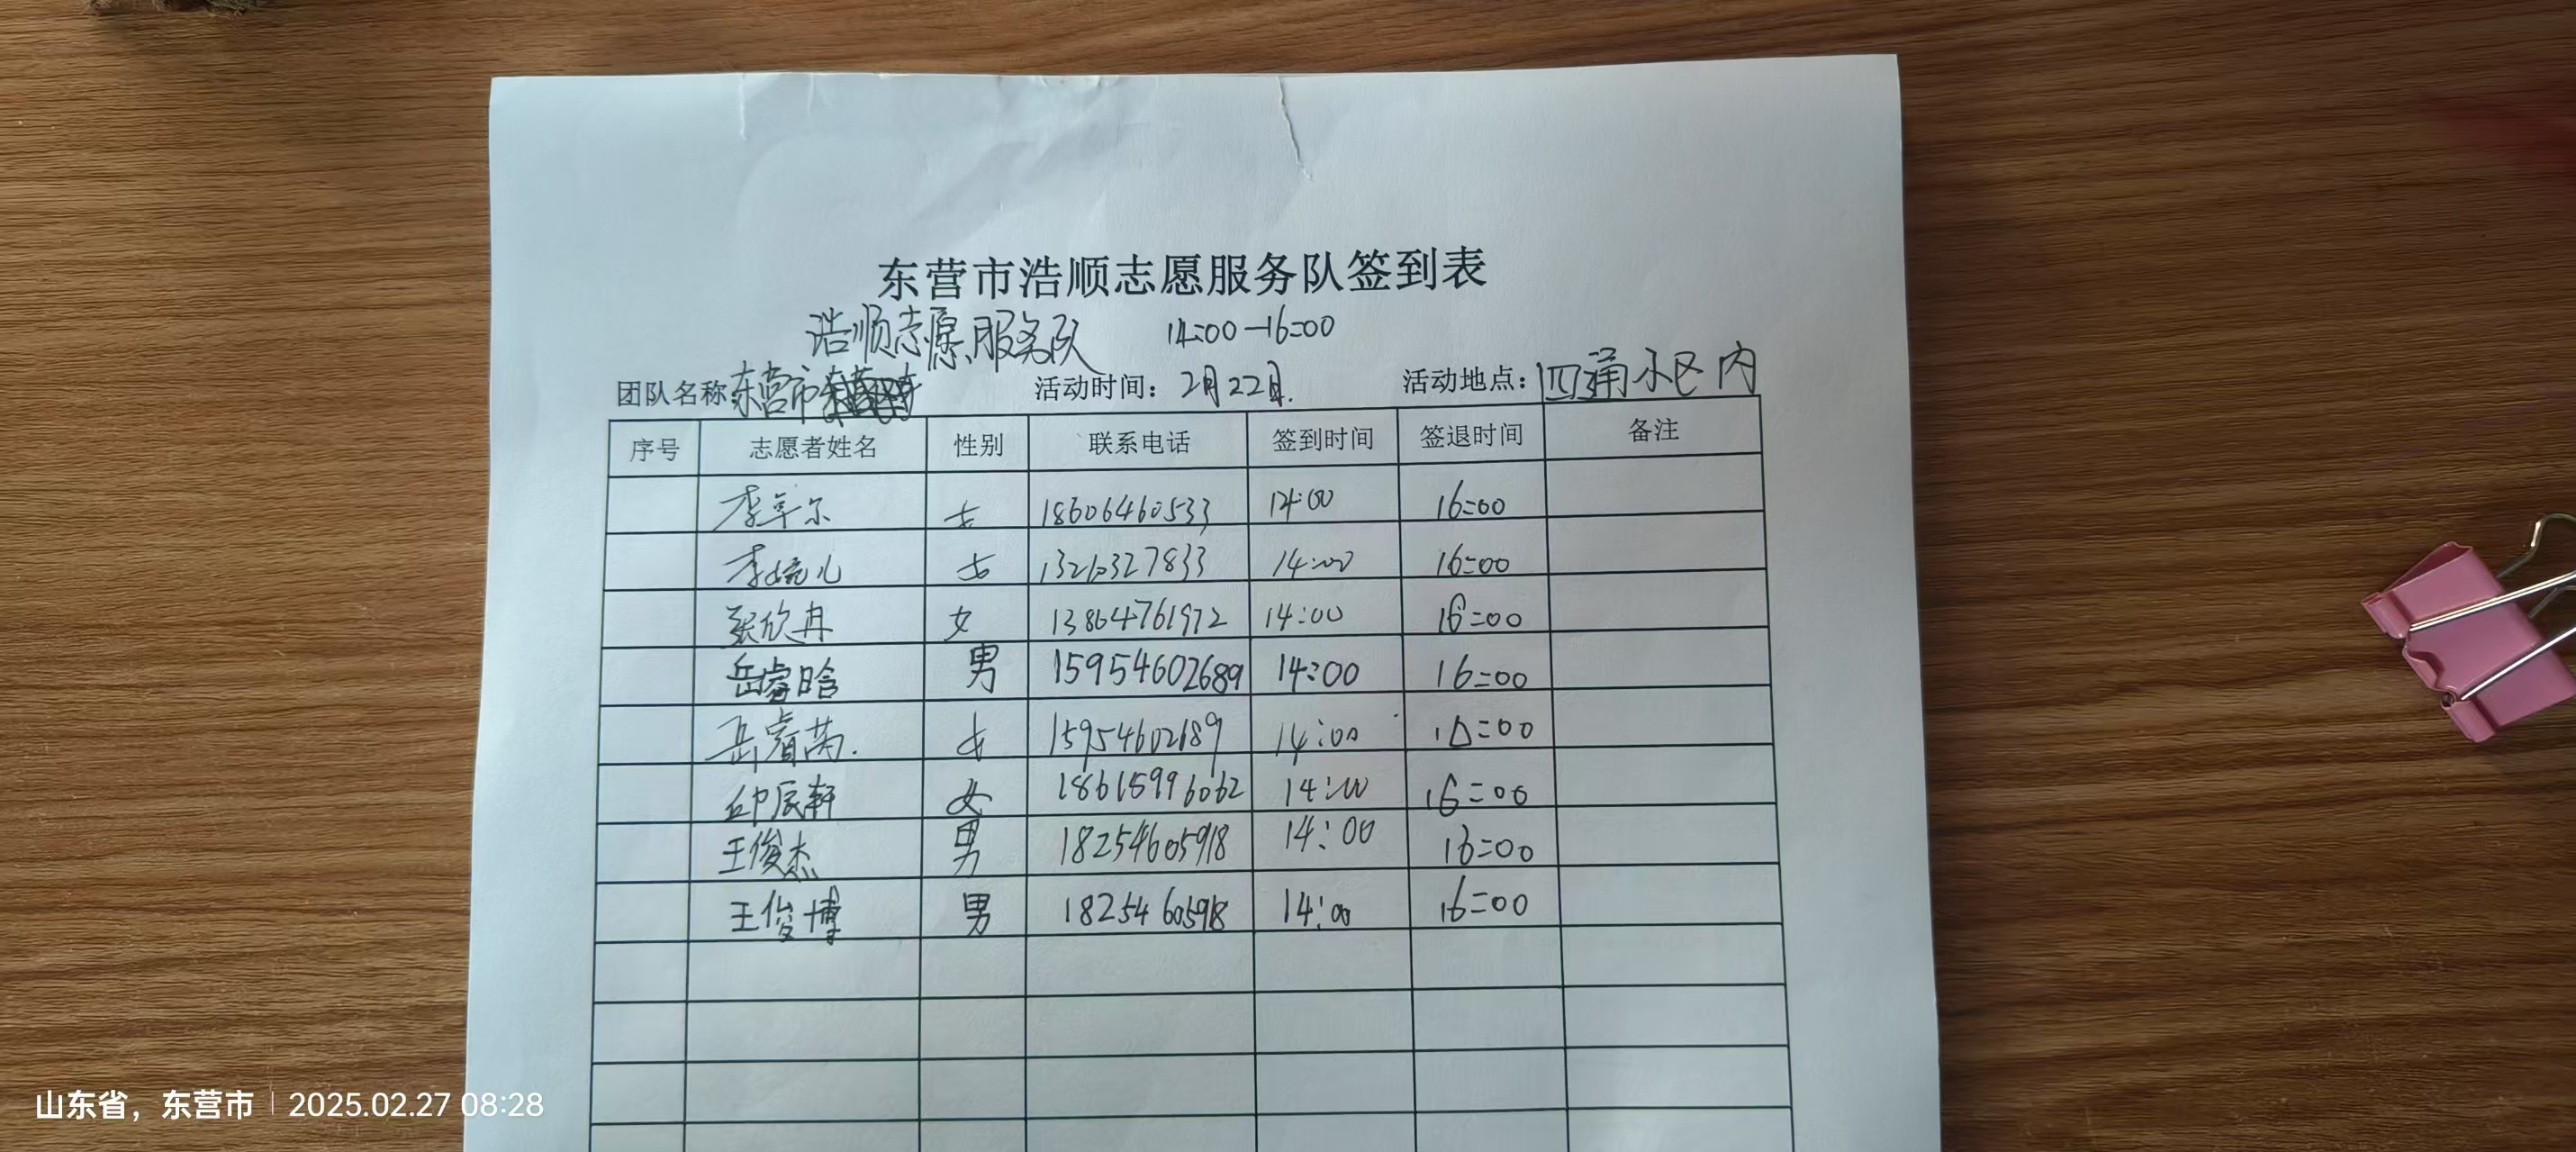 东营市浩顺志愿服务队签到表
浩顺志愿服务队 14:00—16:00
团队名称:东营市 活动时间: 2月22日. 活动地点: 四通小区内
序号 志愿者姓名 性别 联系电话 签到时间 签退时间 备注
李 尔 女 18606460533 14:00 16:00
李婉儿 女 14:00 16:00
张欣冉 女 13864761972 14:00 16:00
岳睿晗 男 15954602689 14:00 16:00
岳睿芮. 女 15954602689 14:00 16:00
辰轩 女 18615996062 14:00 16:00
王俊杰 男 18254605918 14:00 16:00
王俊博 男 18254605918 14:00 16:00
山东省，东营市 2025.02.27 08:28